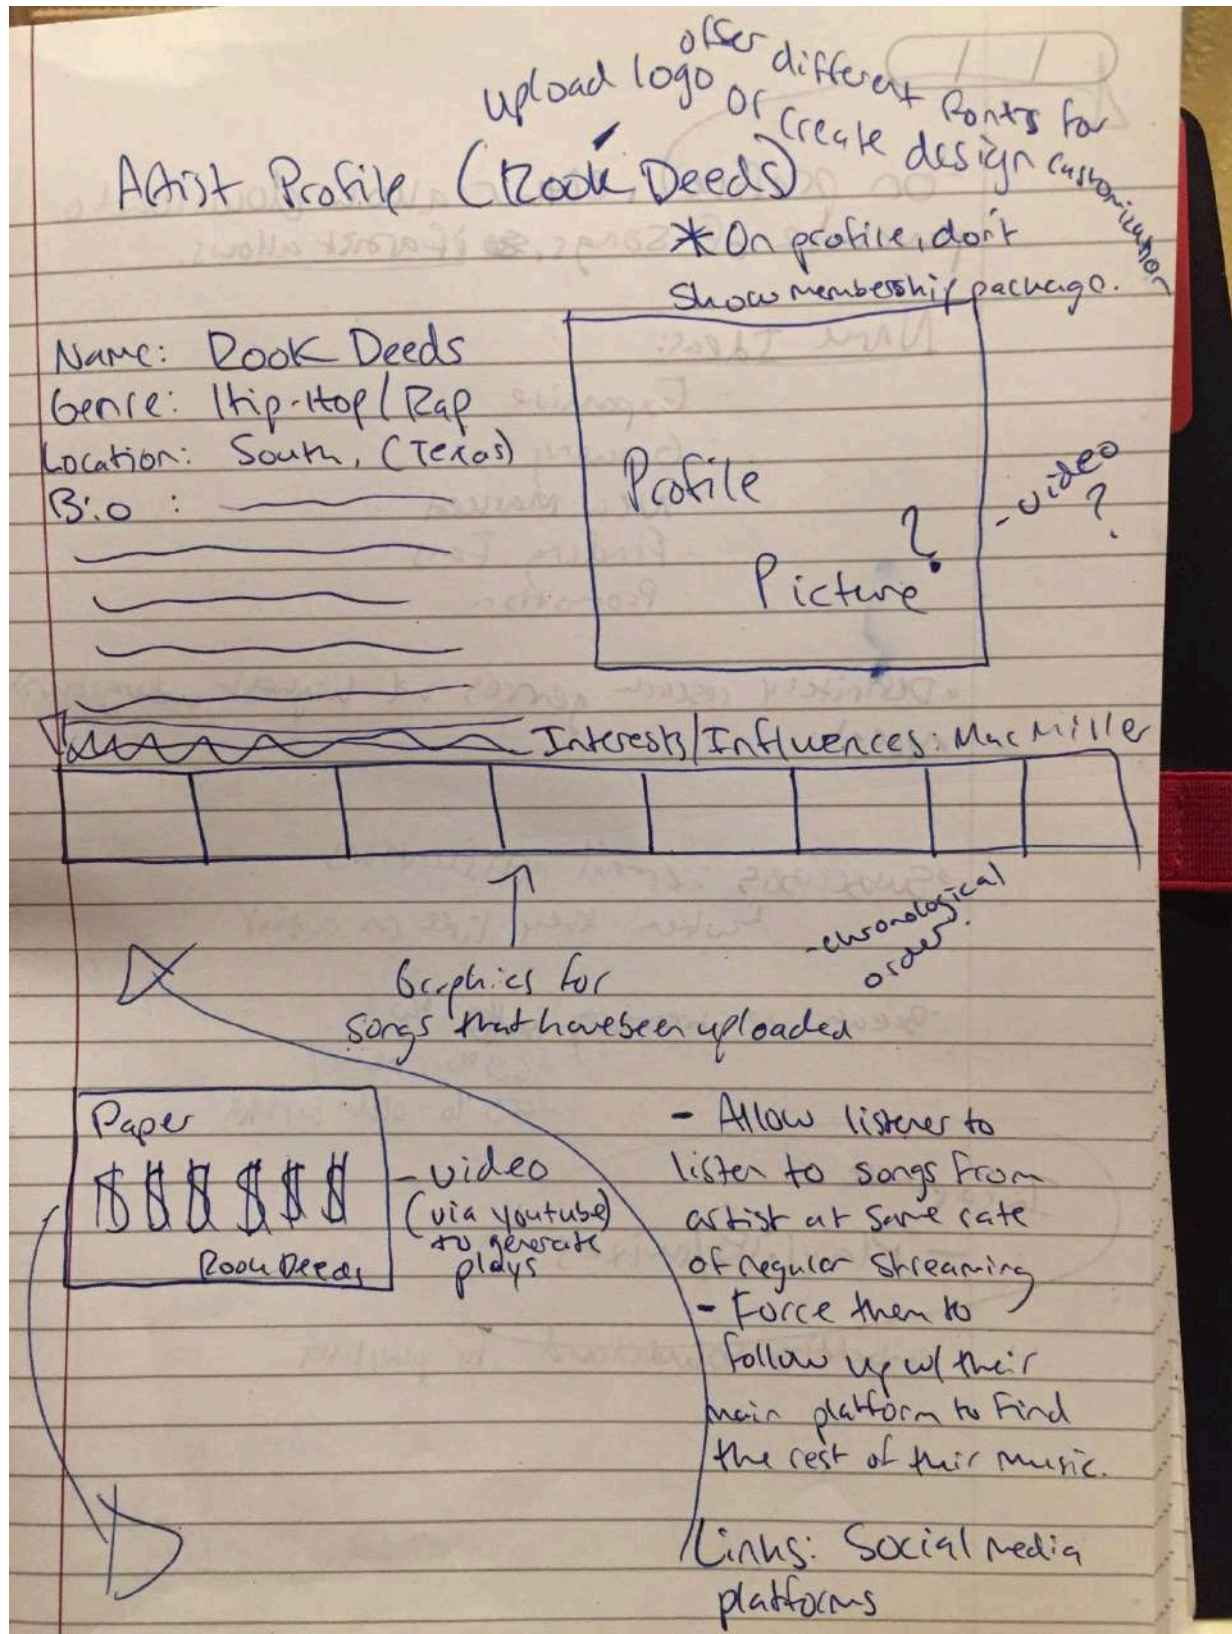 offer different fonts for customization
upload logo or create design
Artist Profile (Rook Deeds)
* On profile, don't
show membership package.
Name: Rook Deeds
Genre: Hip-Hop/Rap
Location: South, (Texas)
Bio:
Profile
Picture?
- video
?
Interests/Influences: Mac Miller
Graphics for
songs that have been uploaded
- chronological
order.
Paper
$ $ $ $ $ $
Rook Deeds
- video
(via youtube)
to generate
plays
- Allow listener to
listen to songs from
artist at same rate
of regular streaming
- Force them to
follow up w/ their
main platform to find
the rest of their music.
Links: Social media
platforms